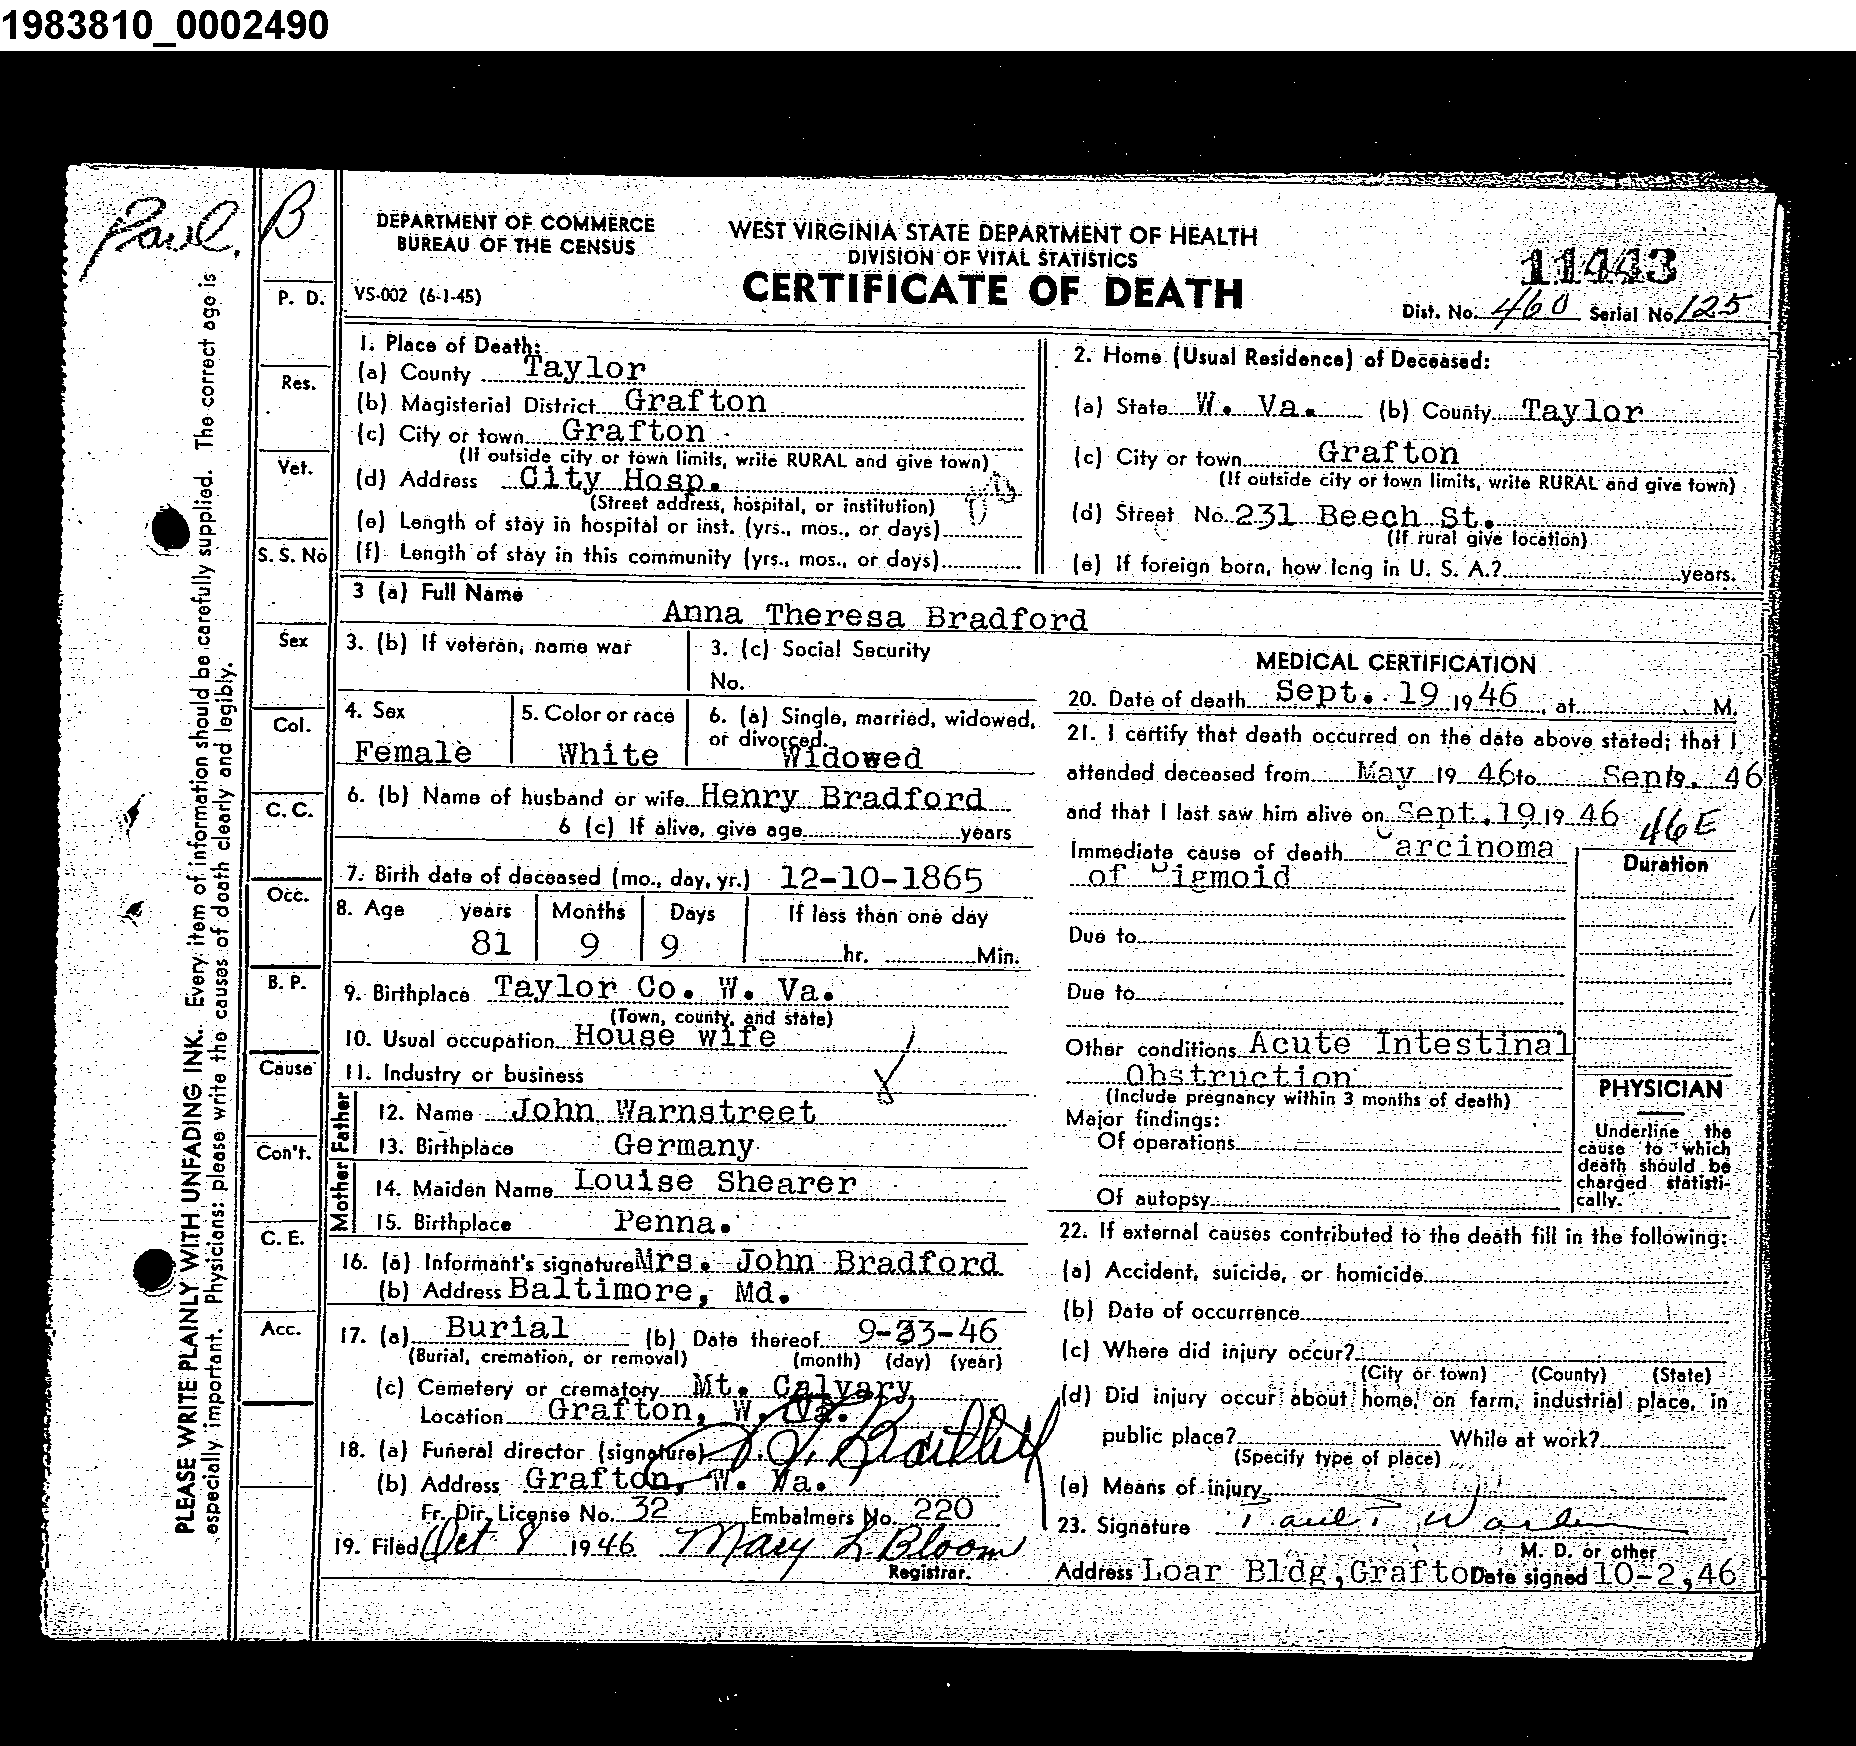 1983810_0002490
Paul. B
DEPARTMENT OF COMMERCE
BUREAU OF THE CENSUS
VS-002 (6-1-45)
WEST VIRGINIA STATE DEPARTMENT OF HEALTH
DIVISION OF VITAL STATISTICS
CERTIFICATE OF DEATH
11443
Dist. No. 460 Serial No. 125
P. D.
Res.
Vet.
S. S. No
Sex
Col.
C. C.
Occ.
B. P.
Cause
Con't.
C. E.
Acc.
PLEASE WRITE PLAINLY WITH UNFADING INK. Every item of information should be carefully supplied. The correct age is
especially important. Physicians: please write the causes of death clearly and legibly.
1. Place of Death:
(a) County Taylor
(b) Magisterial District Grafton
(c) City or town Grafton
(If outside city or town limits, write RURAL and give town)
(d) Address City Hosp.
(Street address, hospital, or institution)
(e) Length of stay in hospital or inst. (yrs., mos., or days)
(f) Length of stay in this community (yrs., mos., or days)
2. Home (Usual Residence) of Deceased:
(a) State W. Va. (b) County Taylor
(c) City or town Grafton
(If outside city or town limits, write RURAL and give town)
(d) Street No. 231 Beech St.
(If rural give location)
(e) If foreign born, how long in U. S. A.? years.
3 (a) Full Name
Anna Theresa Bradford
3. (b) If veteran, name war
3. (c) Social Security
No.
4. Sex
Female
5. Color or race
White
6. (a) Single, married, widowed,
or divorced.
Widowed
6. (b) Name of husband or wife Henry Bradford
6 (c) If alive, give age years
7. Birth date of deceased (mo., day, yr.) 12-10-1865
8. Age years Months Days If less than one day
81 9 9 hr. Min.
9. Birthplace Taylor Co. W. Va.
(Town, county, and state)
10. Usual occupation House wife
11. Industry or business
Father
12. Name John Warnstreet
13. Birthplace Germany
Mother
14. Maiden Name Louise Shearer
15. Birthplace Penna.
16. (a) Informant's signature Mrs. John Bradford
(b) Address Baltimore, Md.
17. (a) Burial (b) Date thereof 9-23-46
(Burial, cremation, or removal) (month) (day) (year)
(c) Cemetery or crematory Mt. Calvary
Location Grafton, W. Va.
18. (a) Funeral director (signature) Bartlett
(b) Address Grafton, W. Va.
Fr. Dir. License No. 32 Embalmers No. 220
19. Filed Oct 8 1946 Mary L Bloom
Registrar.
MEDICAL CERTIFICATION
20. Date of death Sept. 19 1946, at M.
21. I certify that death occurred on the date above stated; that I
attended deceased from May 19 46 to Sept 19, 46
and that I last saw him alive on Sept. 19 19 46
46E
Immediate cause of death Carcinoma
of Sigmoid
Duration
Due to
Due to
Other conditions Acute Intestinal
Obstruction
(Include pregnancy within 3 months of death)
Major findings:
Of operations
Of autopsy
PHYSICIAN
Underline the
cause to which
death should be
charged statisti-
cally.
22. If external causes contributed to the death fill in the following:
(a) Accident, suicide, or homicide
(b) Date of occurrence
(c) Where did injury occur?
(City or town) (County) (State)
(d) Did injury occur about home, on farm, industrial place, in
public place? While at work?
(Specify type of place)
(e) Means of injury
23. Signature Paul P. Warden
M. D. or other
Address Loar Bldg, Grafton Date signed 10-2, 46